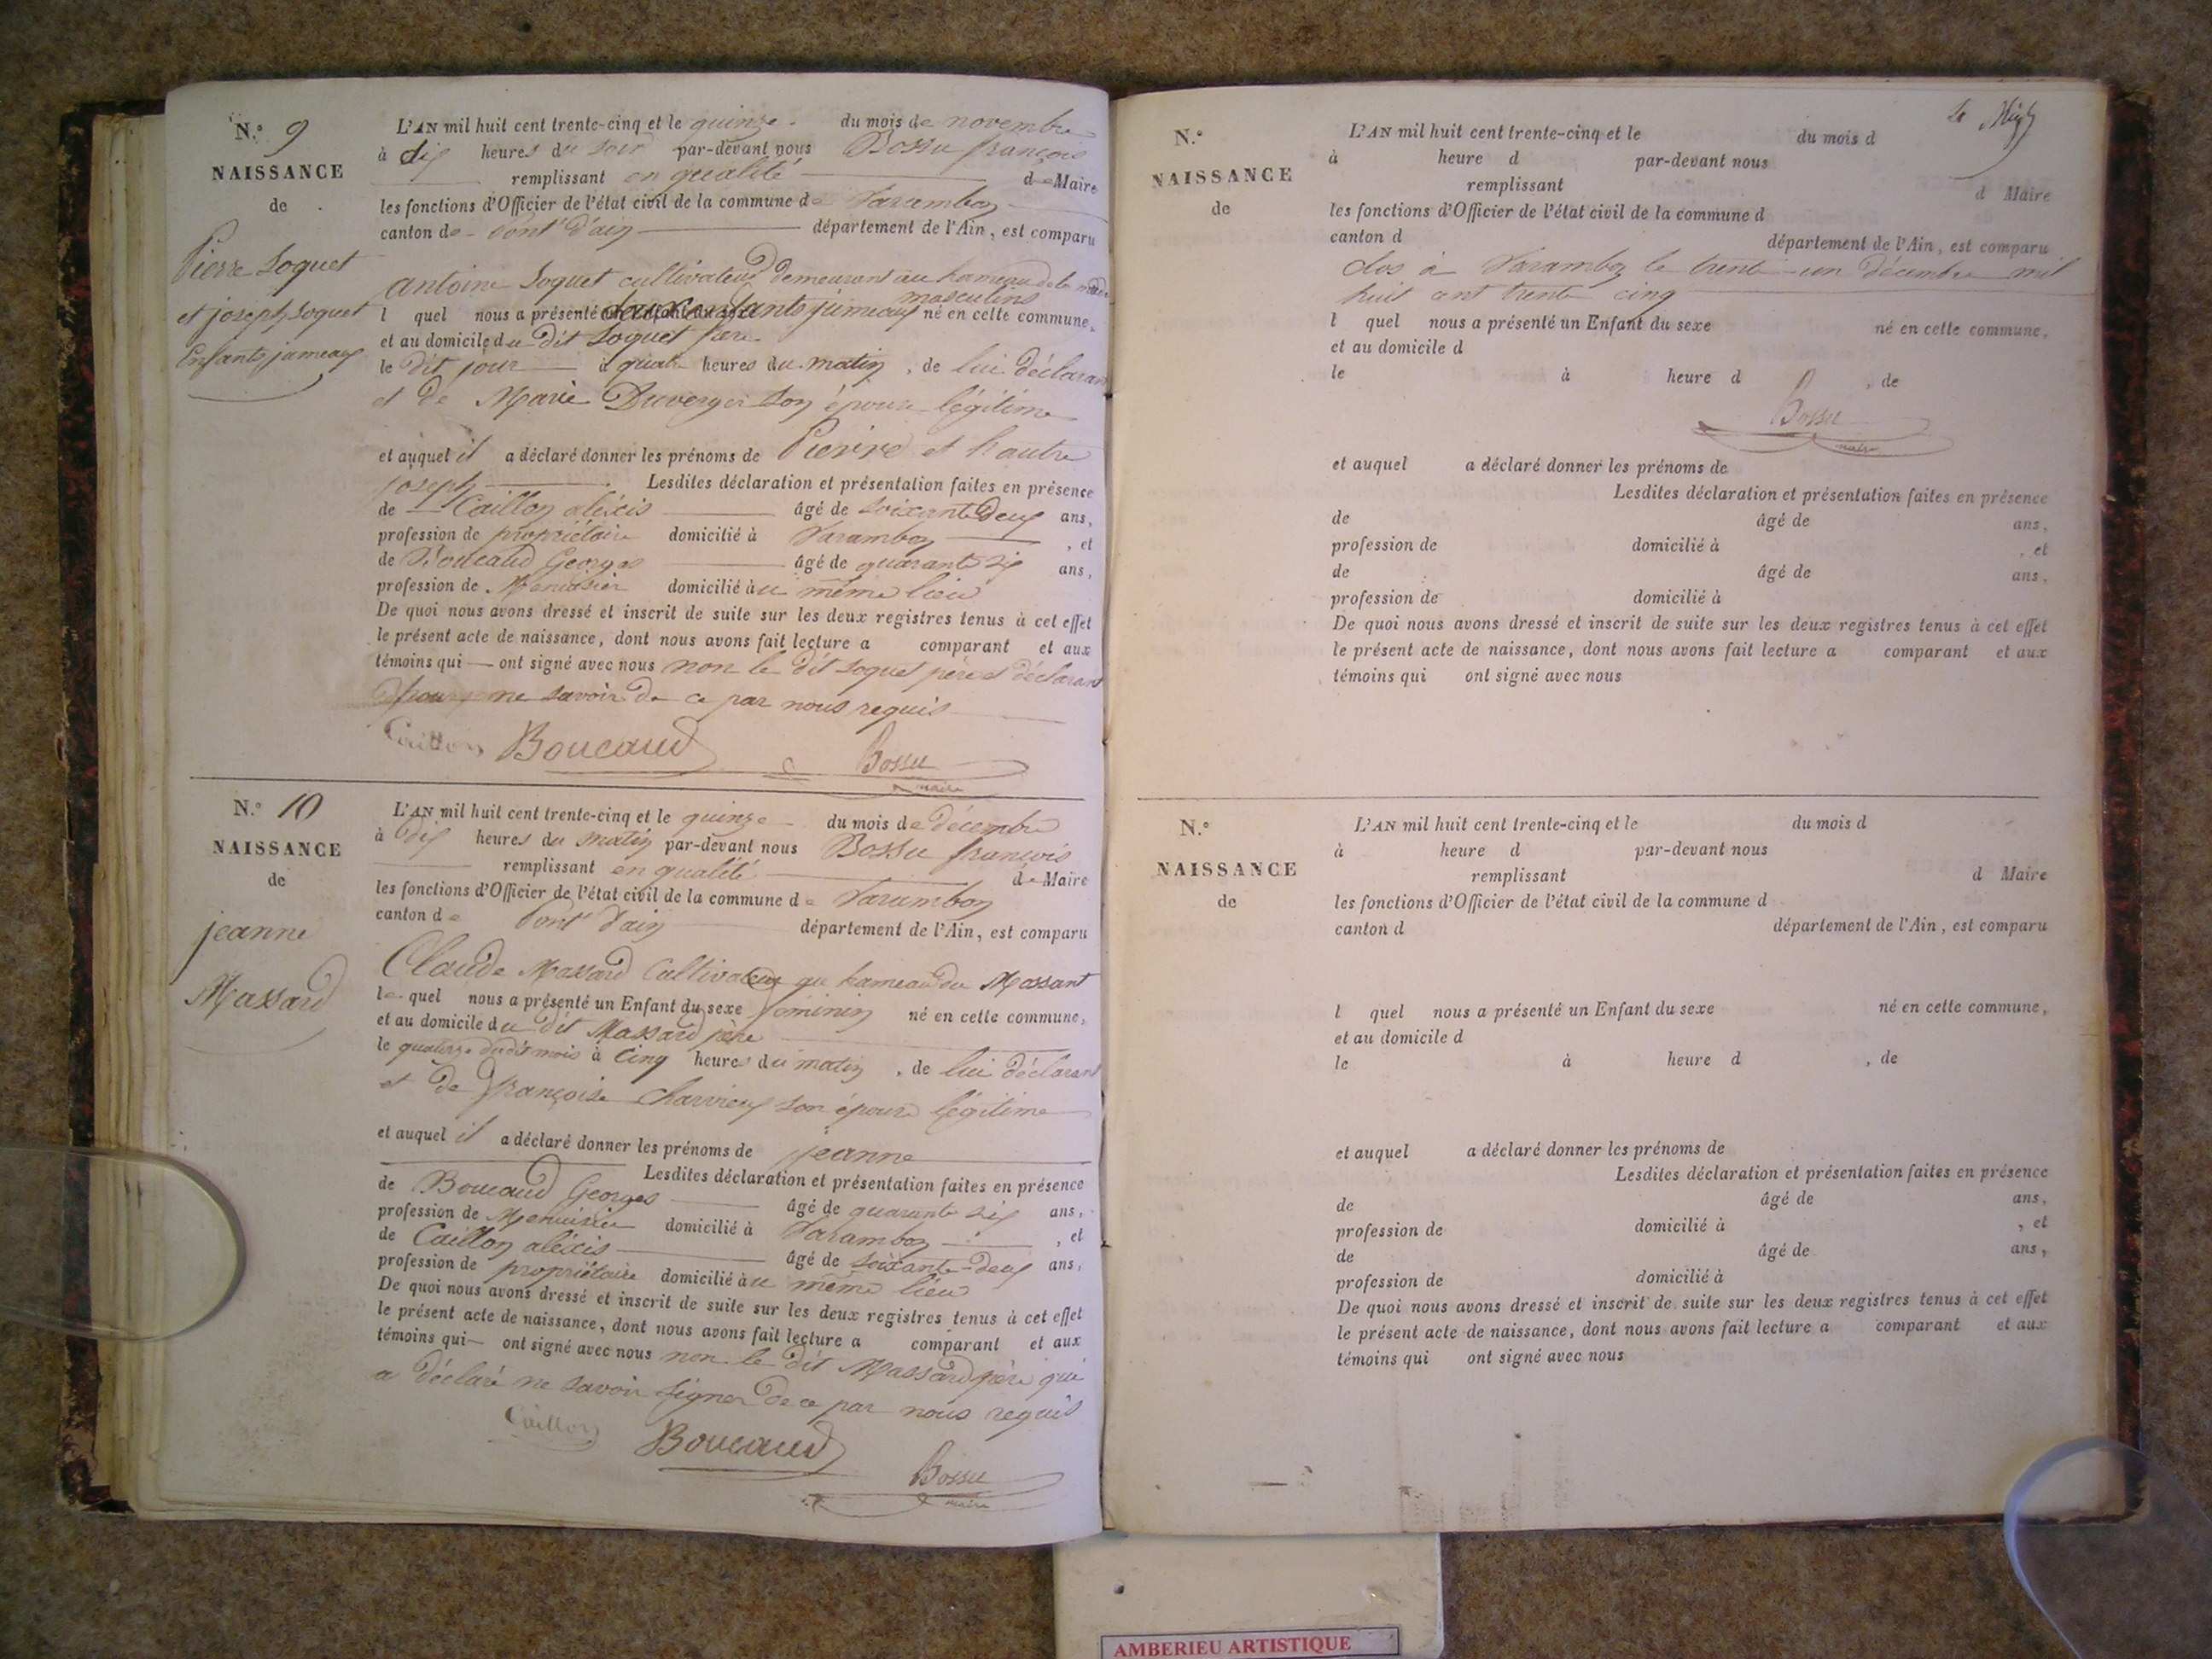 N.° 9
NAISSANCE
de
Pierre Soquet
et joseph Soquet
Enfants jumeaux
L'AN mil huit cent trente-cinq et le quinze du mois de novembre
à dix heures du soir par-devant nous Bossu françois
remplissant en qualité de Maire
les fonctions d'Officier de l'état civil de la commune de Varambon
canton de Pont d'ain département de l'Ain, est comparu
antoine Soquet cultivateur demeurant au hameau de la
l quel nous a présenté deux enfants jumeaux masculins né en cette commune,
et au domicile du dit Soquet père
le dit jour à quatre heures du matin, de lui déclarant
et de Marie Duverger son épouse légitime
et auquel il a déclaré donner les prénoms de Pierre et l'autre
joseph Lesdites déclaration et présentation faites en présence
de Caillon aléxis âgé de soixante deux ans,
profession de propriétaire domicilié à Varambon, et
de Boucaud Georges âgé de quarante six ans,
profession de Menuisier domicilié au même lieu
De quoi nous avons dressé et inscrit de suite sur les deux registres tenus à cet effet
le présent acte de naissance, dont nous avons fait lecture a comparant et aux
témoins qui ont signé avec nous non le dit Soquet père déclarant
pour ne savoir de ce par nous requis
Caillon Boucaud Bossu
maire
N.° 10
NAISSANCE
de
jeanne
Massard
L'AN mil huit cent trente-cinq et le quinze du mois de décembre
à dix heures du matin par-devant nous Bossu françois
remplissant en qualité de Maire
les fonctions d'Officier de l'état civil de la commune de Varambon
canton de Pont d'ain département de l'Ain, est comparu
Claude Massard Cultivateur au hameau du Massant
le quel nous a présenté un Enfant du sexe féminin né en cette commune,
et au domicile du dit Massard père
le quatorze dudit mois à cinq heures du matin, de lui déclarant
et de françoise Charvieux son épouse légitime
et auquel il a déclaré donner les prénoms de jeanne
Lesdites déclaration et présentation faites en présence
de Boucaud Georges âgé de quarante six ans,
profession de Menuisier domicilié à Varambon, et
de Caillon aléxis âgé de soixante-deux ans,
profession de propriétaire domicilié au même lieu
De quoi nous avons dressé et inscrit de suite sur les deux registres tenus à cet effet
le présent acte de naissance, dont nous avons fait lecture a comparant et aux
témoins qui ont signé avec nous non le dit Massard père qui
a déclaré ne savoir signer de ce par nous requis
Caillon Boucaud
Bossu
maire
N.°
NAISSANCE
de
L'AN mil huit cent trente-cinq et le du mois d
à heure d par-devant nous
remplissant d Maire
les fonctions d'Officier de l'état civil de la commune d
canton d département de l'Ain, est comparu
clos à Varambon le trente-un décembre mil
huit cent trente cinq
l quel nous a présenté un Enfant du sexe né en cette commune,
et au domicile d
le à heure d , de
Bossu
maire
et auquel a déclaré donner les prénoms de
Lesdites déclaration et présentation faites en présence
de âgé de ans,
profession de domicilié à , et
de âgé de ans,
profession de domicilié à
De quoi nous avons dressé et inscrit de suite sur les deux registres tenus à cet effet
le présent acte de naissance, dont nous avons fait lecture a comparant et aux
témoins qui ont signé avec nous
N.°
NAISSANCE
de
L'AN mil huit cent trente-cinq et le du mois d
à heure d par-devant nous
remplissant d Maire
les fonctions d'Officier de l'état civil de la commune d
canton d département de l'Ain, est comparu
l quel nous a présenté un Enfant du sexe né en cette commune,
et au domicile d
le à heure d , de
et auquel a déclaré donner les prénoms de
Lesdites déclaration et présentation faites en présence
de âgé de ans,
profession de domicilié à , et
de âgé de ans,
profession de domicilié à
De quoi nous avons dressé et inscrit de suite sur les deux registres tenus à cet effet
le présent acte de naissance, dont nous avons fait lecture a comparant et aux
témoins qui ont signé avec nous
AMBERIEU ARTISTIQUE